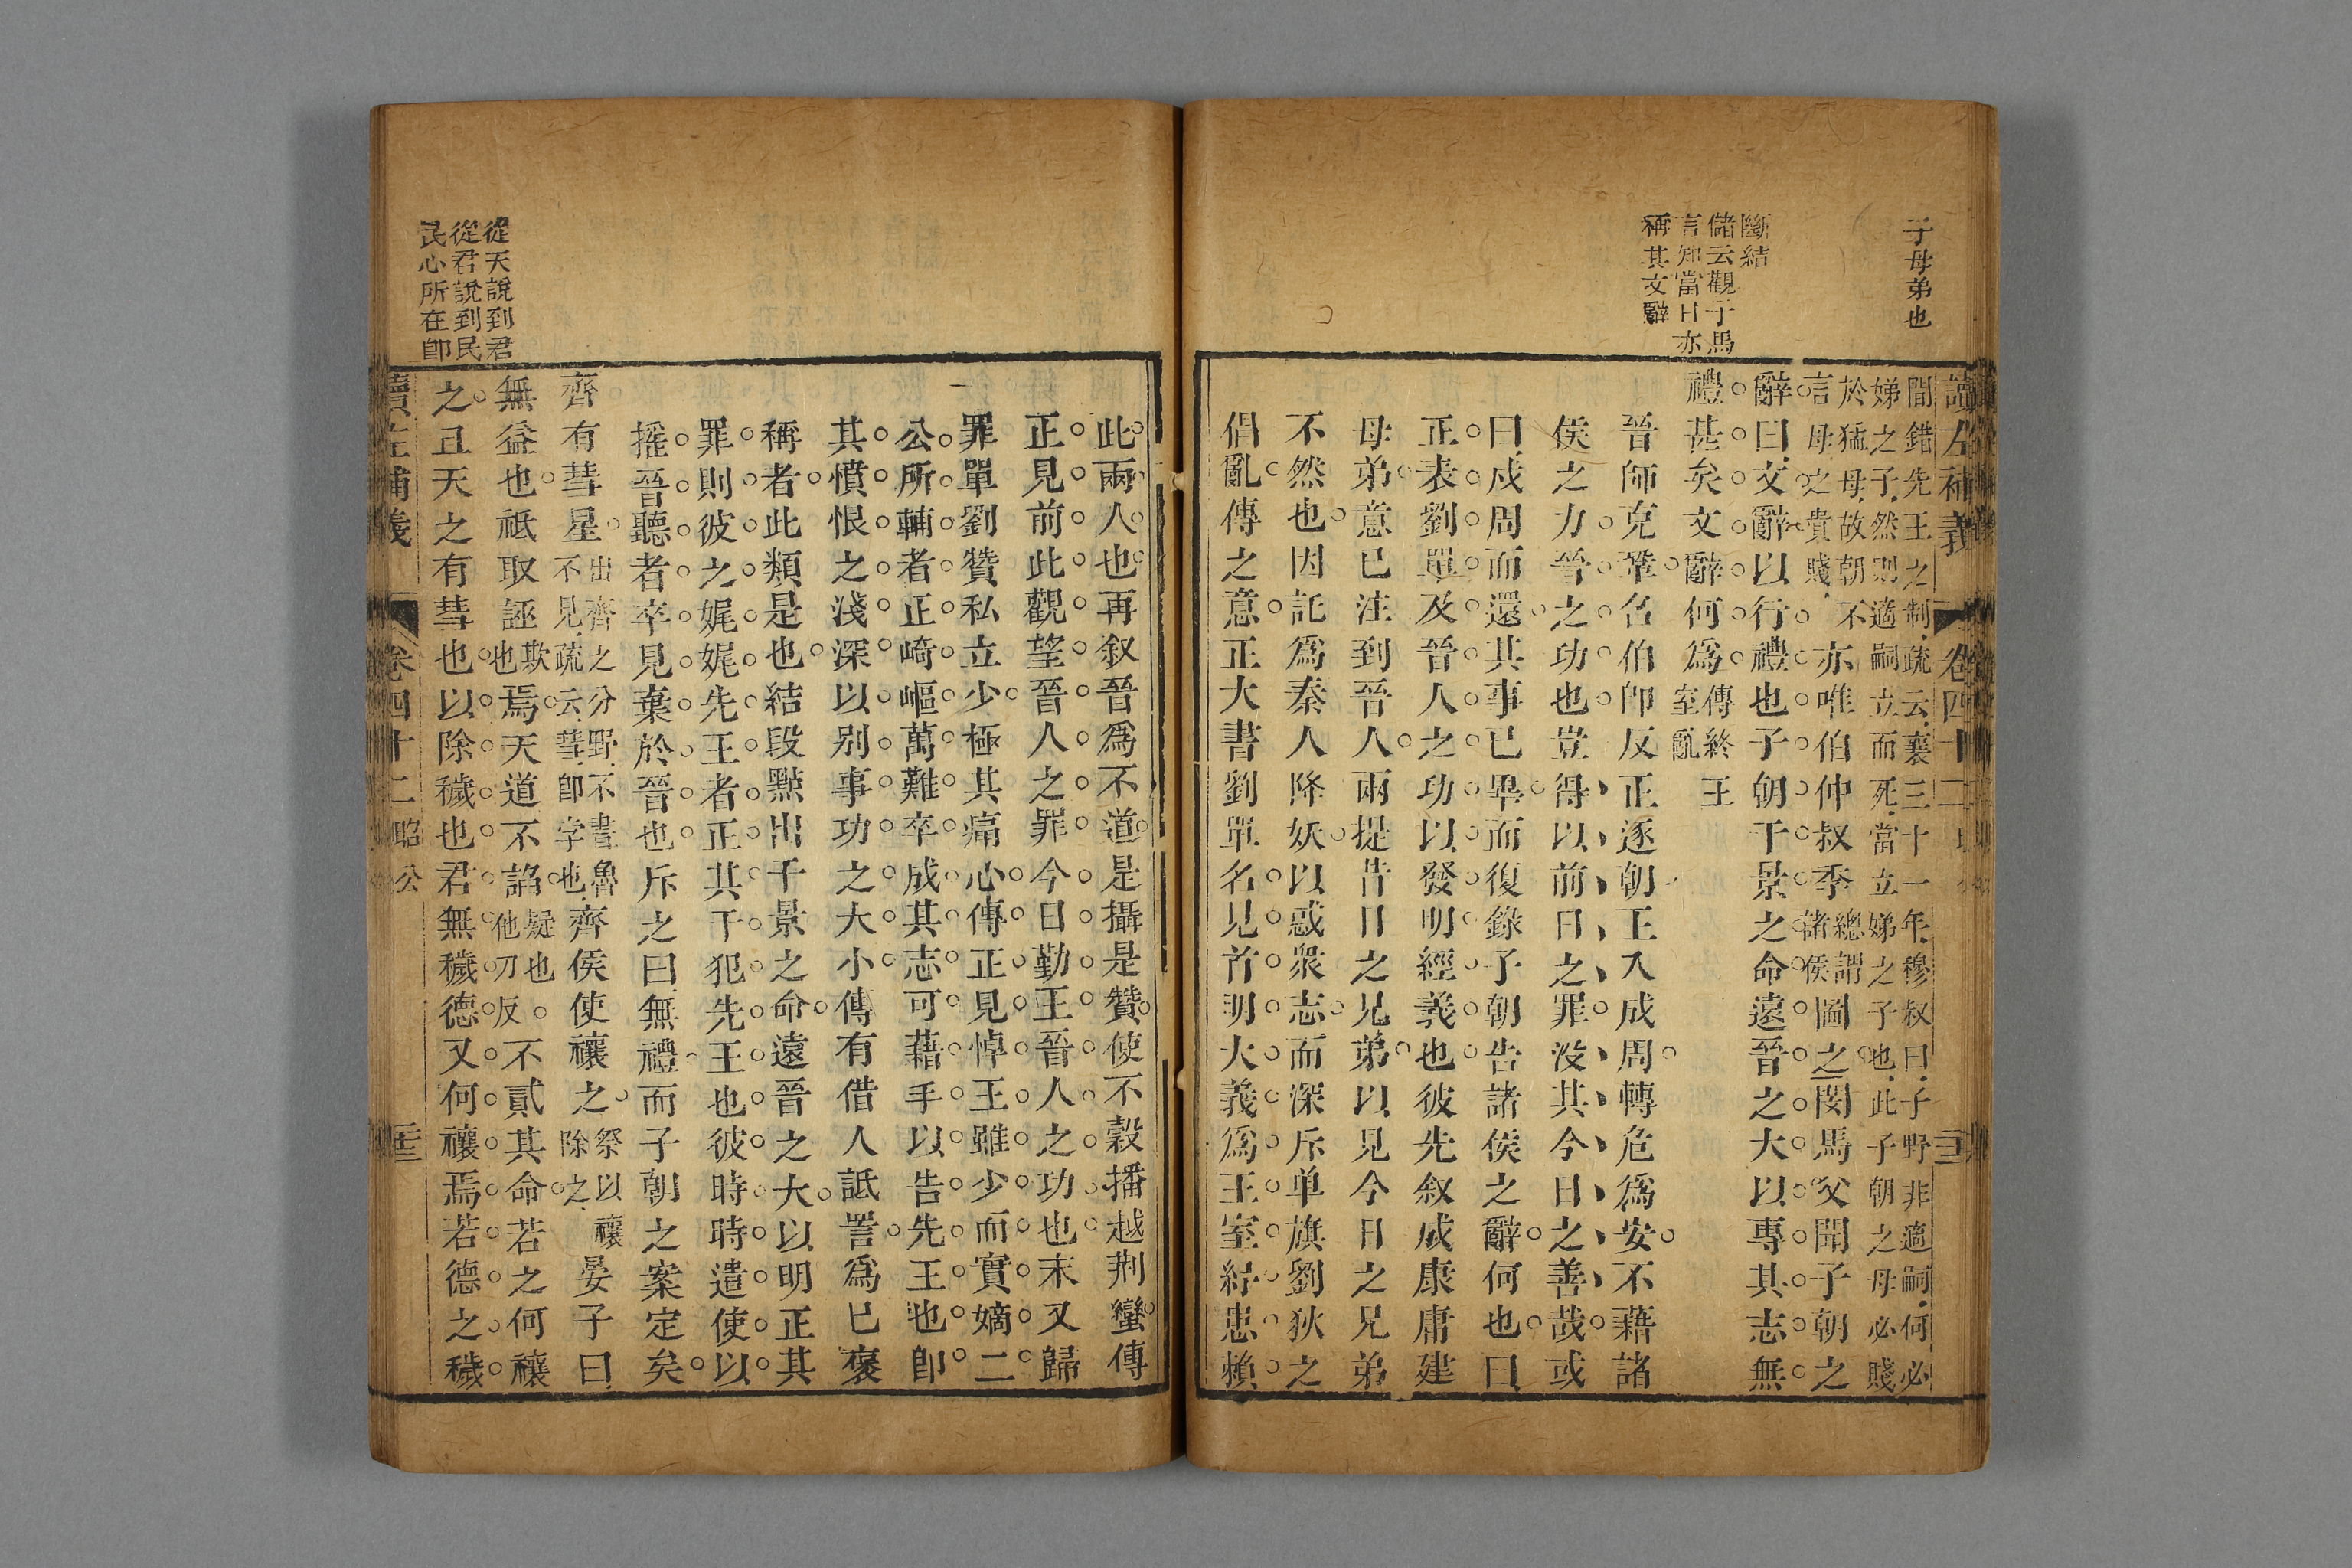 子母弟也
斷結
儲云觀子馬
言知當日亦
稱其文辭
讀左補義
卷四十二
間錯先王之制疏云襄三十一年穆叔曰子野非適嗣何必
娣之子然則適嗣立而死當立娣之子也此子朝之母必賤
於猛母故朝不
言母之貴賤
亦唯伯仲叔季
總謂
諸侯
圖之閔馬父聞子朝之
辭曰文辭以行禮也子朝干景之命遠晉之大以專其志無
禮甚矣文辭何為
傳終王
室亂
晉師克鞏召伯卽反正逐朝王入成周轉危為安不藉諸
侯之力晉之功也豈得以前日之罪沒其今日之善哉或
曰戍周而還其事已畢而復錄子朝告諸侯之辭何也曰
正表劉單及晉人之功以發明經義也彼先叙成康庸建
母弟意已注到晉人兩提昔日之兄弟以見今日之兄弟
不然也因託為秦人降妖以惑衆志而深斥单旗劉狄之
倡亂傳之意正大書劉單名見首明大義為王室紓患賴
此兩人也再叙晉為不道是攝是贊使不穀播越荆蠻傳
正見前此觀望晉人之罪今日勤王晉人之功也末又歸
罪單劉贊私立少極其痛心傳正見悼王雖少而實嫡二
公所輔者正崎嶇萬難卒成其志可藉手以告先王也卽
其憤恨之淺深以别事功之大小傳有借人詆詈為已褒
稱者此類是也結段㸃出干景之命遠晉之大以明正其
罪則彼之娓娓先王者正其干犯先王也彼時時遣使以
摇晉聽者卒見棄於晉也斥之曰無禮而子朝之案定矣
齊有彗星
出齊之分野不書魯
不見疏云彗卽字也
齊侯使禳之
祭以禳
除之
晏子曰
無益也祗取誣
欺
也
焉天道不謟
疑也
他刀反
不貳其命若之何禳
之且天之有彗也以除穢也君無穢德又何禳焉若德之穢
從天說到君
從君說到民
民心所在卽
讀左補義
卷四十二
昭公